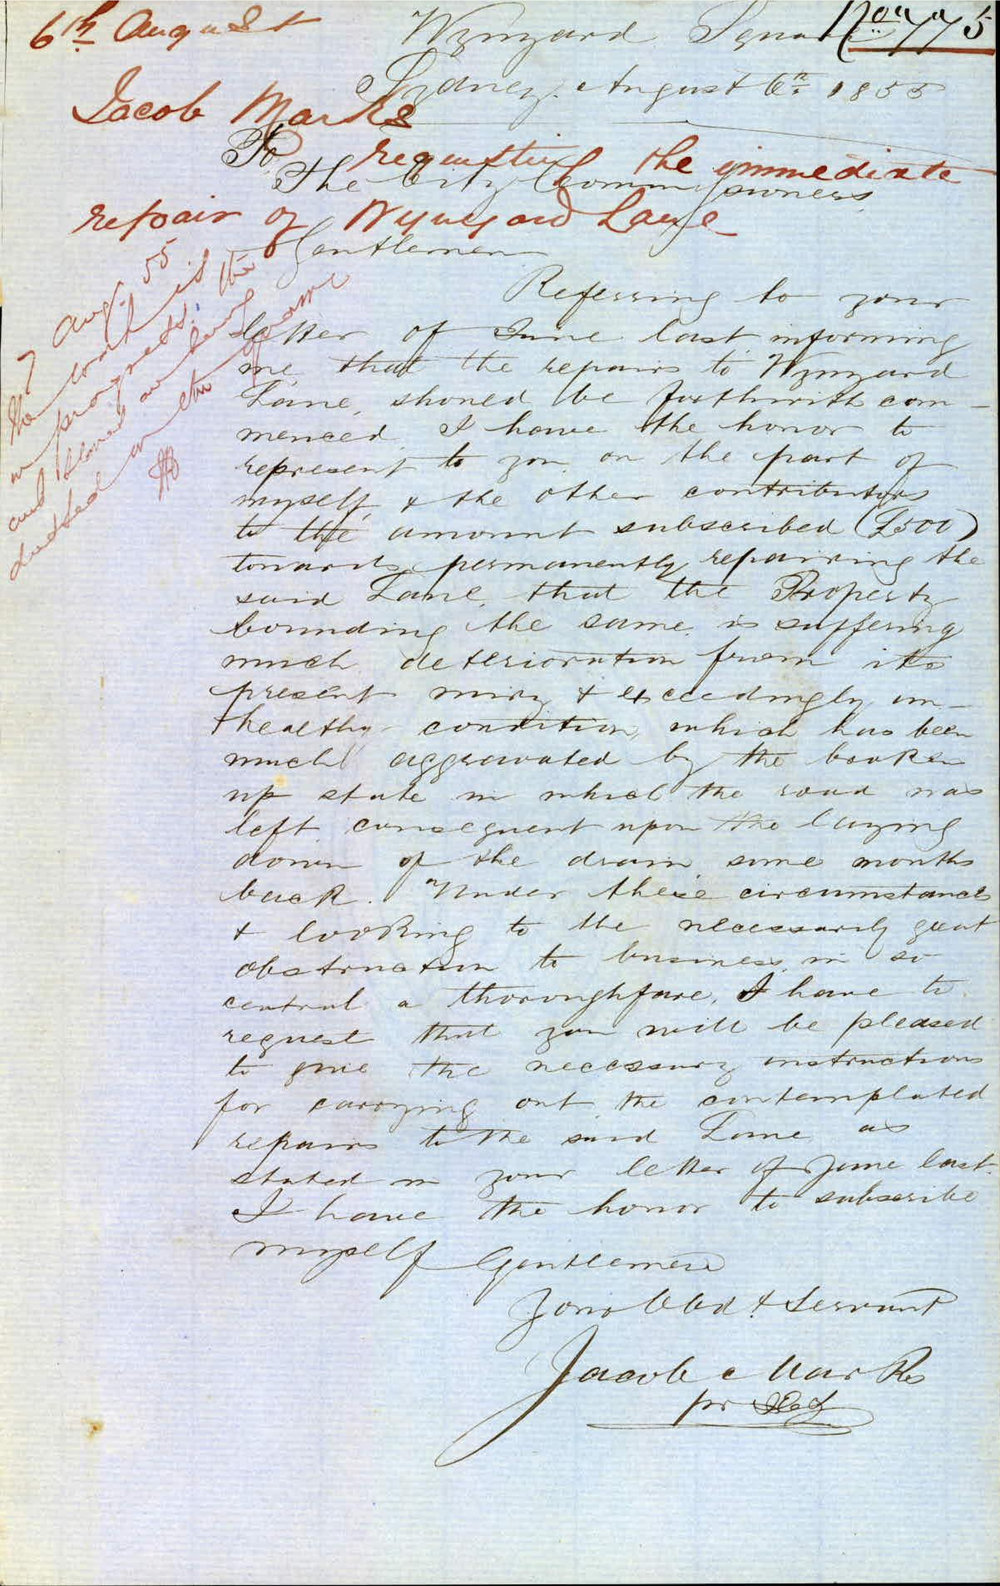 6th August
Wynyard Square
No. 775
Sydney. August 6th 1855
Jacob Marks
To
requesting the immediate
The City Commissioners
repair of Wynyard Lane
Gentlemen
Referring to your
letter of June last informing
me, that the repairs to Wynyard
Lane, should be forthwith com-
menced. I have the honor to
represent to you on the part of
myself, & the other contributors
to the amount subscribed (£500)
towards permanently repairing the
said Lane, that the Property
bounding the same is suffering
much deterioration from its
present miry & exceedingly un-
healthy condition, which has been
much aggravated by the broken
up state in which the road was
left consequent upon the laying
down of the drain some months
back. Under these circumstances
& looking to the necessarily great
obstruction to business in so
central a thoroughfare, I have to
request that you will be pleased
to give the necessary instructions
for carrying out the contemplated
repairs to the said Lane as
stated in your letter of June last.
I have the honor to subscribe
myself Gentlemen
Your Obd t Servant
Jacob Marks
pr
7 Aug. 55
The work is
in progress, the
and